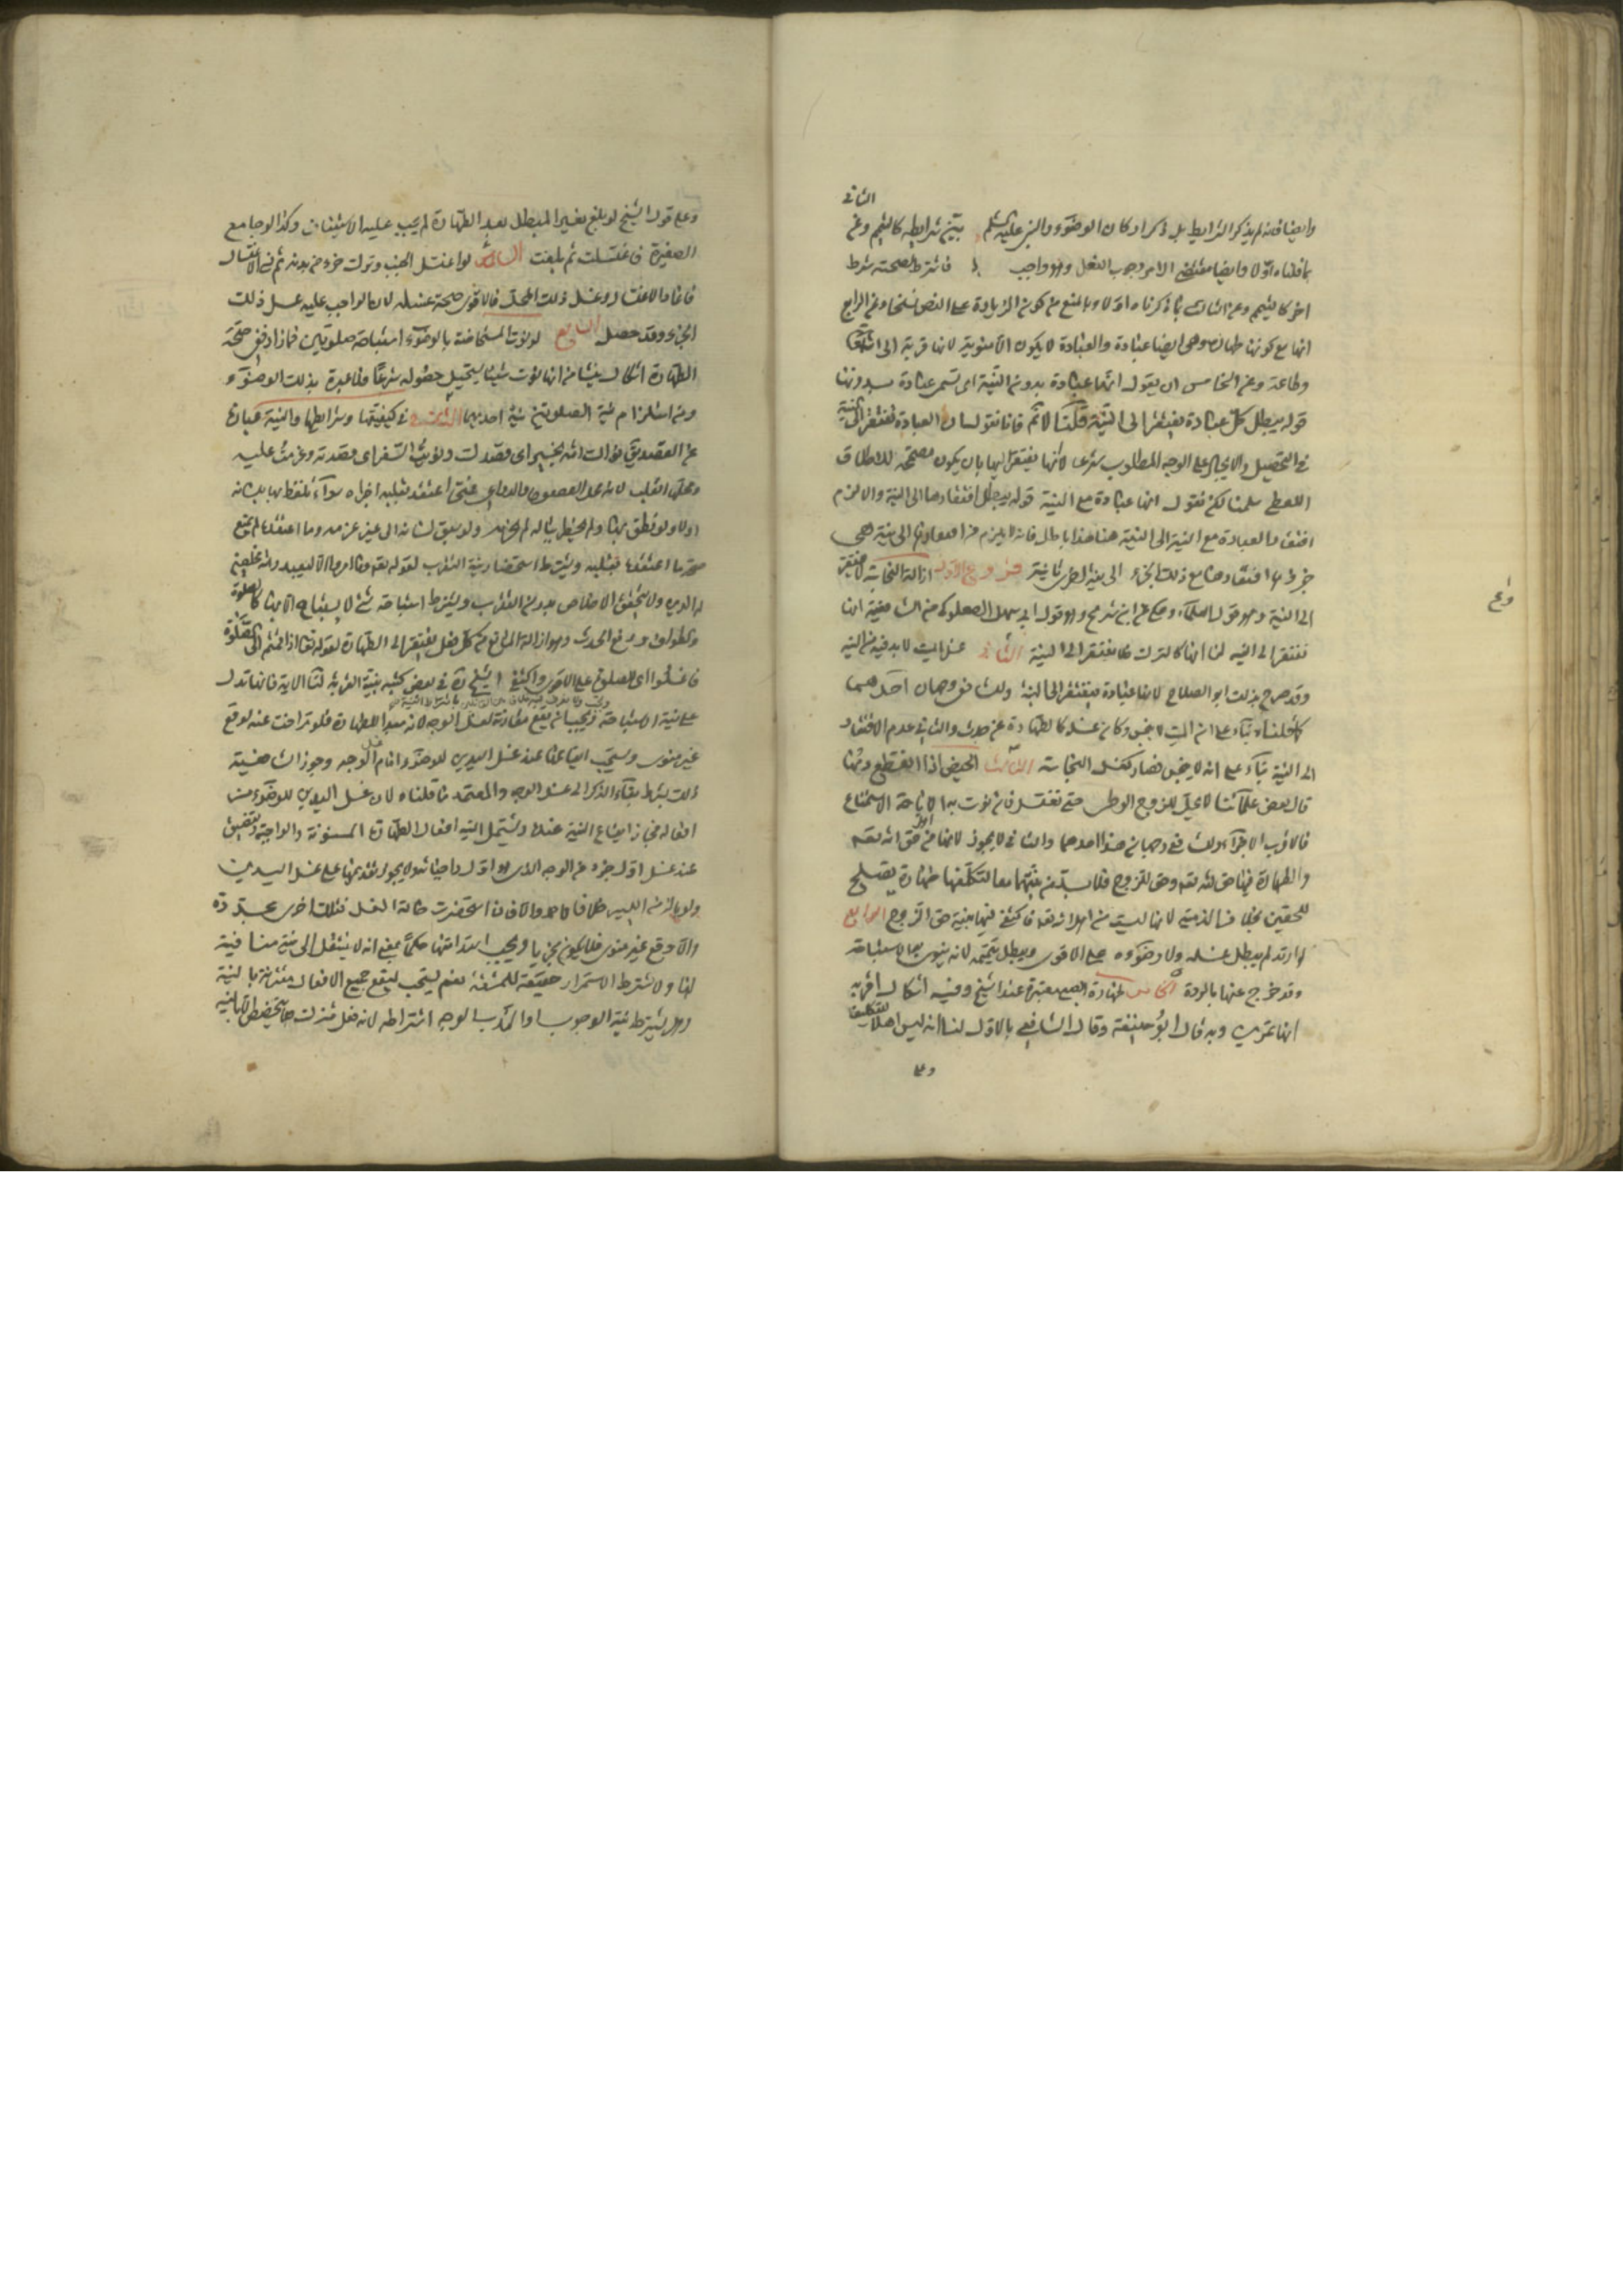 الثاني
وايضا فانه لم يذكر الشرايط بل ذكر اركان الوضوء والنبي عليه السلم بيّن شرايطه كالتيمم وعن
ما قلناه اوّلا وايضا مقتضى الامر وجوب الغسل وهو واجب فاشترط لصحته شرط
اخر كالتيمم وعن الثالث بما ذكرناه اوّلا وبالمنع من كون الزيادة على النص نسخا وعن الرابع
انها مع كونها طهارة وهي ايضا عبادة والعبادة لا يكون الا منوية لانها قربة الى الله تعالى
وطاعة وعن الخامس ان يقول انها عبادة بدون النية اي تسمى عبادة بدونها
قوله يبطل كل عبادة يفتقر الى النيّة قلنا لا ثم فانا نقول ان العبادة تفتقر الى النية
في التحصيل والايجاد على الوجه المطلوب شرعا لانها يفتقر اليها بان يكون مصححة للاطلاق
اللفظي سلمنا لكن نقول انها عبادة مع النية قوله يبطل افتقارها الى النية والا لزم
افتقار العبادة مع النية الى النية هنا هذا باطل فانه لا يلزم من افتقارها الى نية هي
جزؤها افتقارها مع ذلك الجزء الى نية اخرى ثانية فروع الاول ازالة النجاسة لا يفتقر
الى النية وهو قول العلماء وحكي عن ابن شريح وهو قول ابي سهل الصعلوكي من الشافعية انها
تفتقر الى النية لنا انها كالترك فلا يفتقر الى النية الثاني غسل الميت لا بد فيه من النية
وقد صرح بذلك ابو الصلاح لانها عبادة فيفتقر الى النية وللشافعي وجهان احدهما
كما قلناه بناء على ان الميت لا ينجس وكان غسله كالطهارة عن حدث والثاني عدم الافتقار
الى النية بناء على انه لا ينجس فصار كغسل النجاسة الثالث الحيض اذا انقطع دمها
قال بعض علمائنا لا يحل للزوج الوطي حتى تغتسل فان نوت به الاباحة الاستمتاع
فالاقرب الاجزاء وللشافعي وجهان هذا احدهما والثاني لا يجوز لانها من حق الله تعالى
والطهارة فيها حق لله تعالى وحق للزوج فلا بد من نيتهما معا لتكلفها طهارة يصلح
للحقين بخلاف الذمية لانها ليست من اهل الله تعالى فاكتفي فيها بنية حق الزوج الرابع
لو ارتد لم يبطل غسله ولا وضوءه على الاقوى ويبطل تيممه لانه ينوي به الاستباحة
وقد خرج عنها بالردة الخامس طهارة الصبي معتبرة عند الشيخ وفيه اشكال اقربه
انها تمرين وبه قال ابو حنيفة وقال الشافعي بالاول لنا انه ليس اهلا للتكليف
وعلى
وعن
وعلى قول الشيخ لو بلغ بغير المبطل بعد الطهارة لم يجب عليه الاستيناف وكذا لو جامع
الصغيرة فاغتسلت ثم بلغت السادس لو اغتسل الجنب وترك جزء من بدنه ثم نسي الاغتسال
فاعاد الاغتسال وغسل ذلك المحل فالاقوى صحة غسله لان الواجب عليه غسل ذلك
الجزء وقد حصل السابع لو نوت المستحاضة بالوضوء استباحة صلوتين فما زاد ففي صحة
الطهارة اشكال ينشا من انها نوت شيئا يستحيل حصوله شرعا فلا عبرة بذلك الوضوء
ومن استلزام نية الصلوتين نية احديهما الثالث في كيفيتها وشرايطها والنية عبارة
عن القصد يق نواك الله بخير اي قصدك ونويت السفر اي قصدته وعزمت عليه
ومحلها القلب لانه محل القصود والدواعي فمتى اعتقد بقلبه اجزاه سواء تلفظ بها بلسانه
اولا ولو نطق بها ولم يخطر بباله لم يجزه ولو سبق لسانه الى غير عزمه وما اعتقده لم يمنع
صحة ما اعتقده بقلبه ويشترط استحضار نية التقرب لقوله تعالى وما امروا الا ليعبدوا الله مخلصين
له الدين ولا يتحقق الاخلاص بدون التقرب ويشترط استباحة شئ لا يستباح الا بها كالصلوة
والطواف او رفع الحدث وهو ازالة المانع من كل فعل يفتقر الى الطهارة لقوله تعالى اذا قمتم الى الصلوة
فاغسلوا اي للصلوة على الاقوى واكتفى الشيخ ره في بعض كتبه بنية القربة لنا الاية فانها تدل
على نية الاستباحة ويجب ان يقع مقارنة لغسل الوجه لانه مبدا للطهارة فلو تراخت عنه لوقع
غير منوي ويستحب ايقاعها عند غسل اليدين للوضوء امام غسل الوجه وجوز الشافعية
ذلك بشرط بقاء الذكر الى غسل الوجه والمعتمد ما قلناه لان غسل اليدين للوضوء من
افعاله فجاز ايقاع النية عنده ويشتمل النية افعال الطهارة المسنونة والواجبة ويتضيق
عند غسل اول جزء من الوجه الذي هو اول واجباته ولا يجوز تقديمها على غسل اليدين
ولو بالزمن اليسير خلافا لاحمد والا فان استحضرت حالة الغسل فتلك اخرى مجددة
والا وقع غير منوي فلا يكون مجزيا ويجب استدامتها حكما بمعنى انه لا ينتقل الى نية منافية
لها ولا يشترط الاستمرار حقيقة للمشقة نعم يستحب ليقع جميع الافعال مقترنة بالنية
وهل يشترط نية الوجوب او الندب الوجه اشتراطه لانه فعل مشترك فلا يتخصص الا بالنية